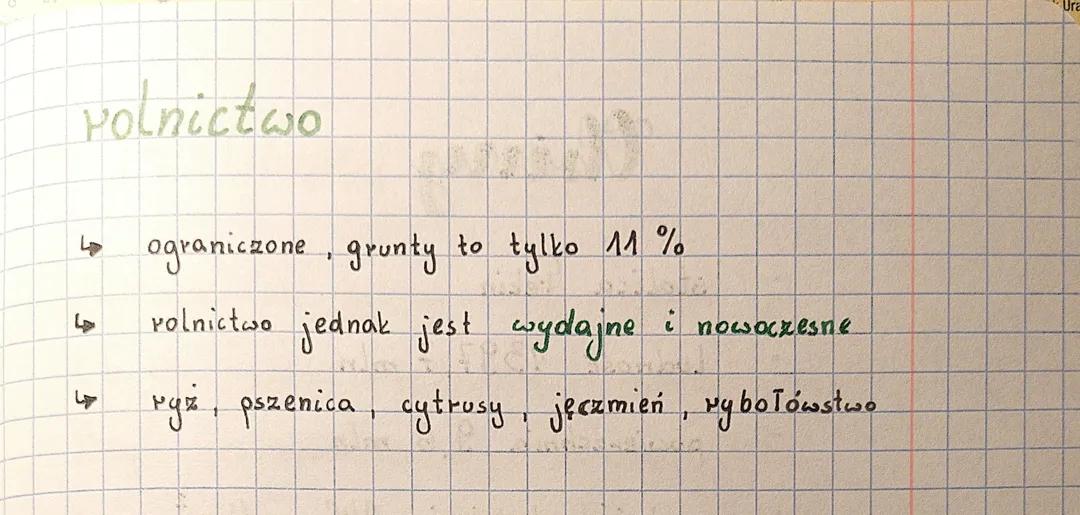 rolnictwo
↳ ograniczone, grunty to tylko 11 %
↳ rolnictwo jednak jest wydajne i nowoczesne
↳ ryż, pszenica, cytrusy, jęczmień, rybołówstwo